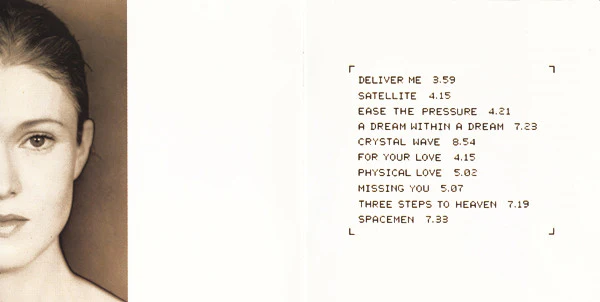 DELIVER ME 3.59
SATELLITE 4.15
EASE THE PRESSURE 4.21
A DREAM WITHIN A DREAM 7.23
CRYSTAL WAVE 8.54
FOR YOUR LOVE 4.15
PHYSICAL LOVE 5.02
MISSING YOU 5.07
THREE STEPS TO HEAVEN 7.19
SPACEMEN 7.33